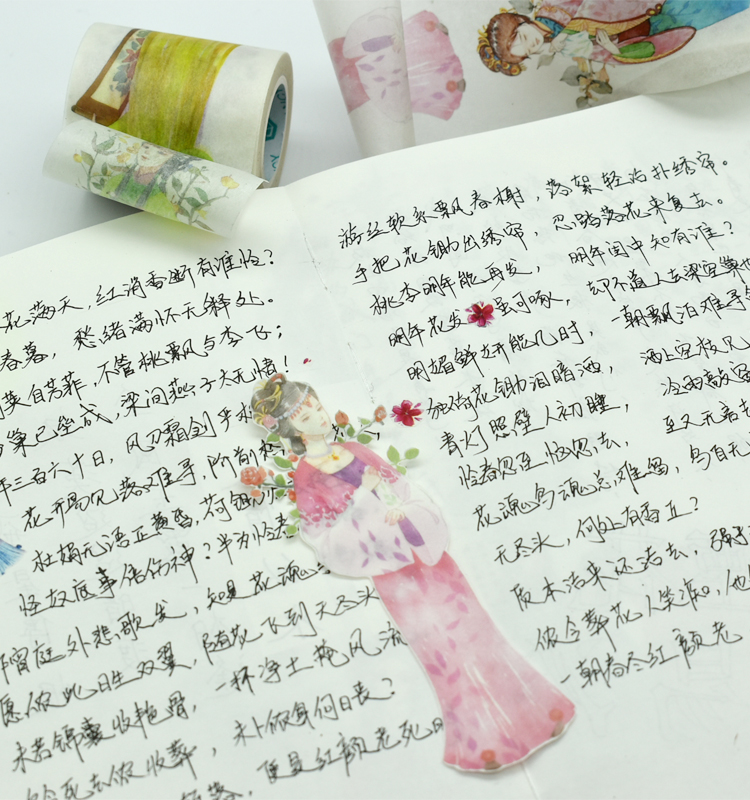 花满天,红消香断有谁怜?
春暮,愁绪满怀无释处。
荚自芳菲,不管桃飘与李飞;
巢已垒成,梁间燕子太无情!
年三百六十日,风刀霜剑严
花开易见落难寻,阶前
杜鹃无语正黄昏,荷锄
怪奴底事倍伤神?半为怜春
宵庭外悲歌发,知是花魂
愿侬此日生双翼,随花飞到天尽头
未若锦囊收艳骨,一抔净土掩风流
今死去侬收葬,未卜侬身何日丧?
便是红颜老死时
游丝软系飘春榭,落絮轻沾扑绣帘。
手把花锄出绣帘,忍踏落花来复去。
桃李明年能再发,明年闺中知有谁?
明年花发虽可啄,却不道人去梁空巢也
明媚鲜妍能几时,一朝飘泊难寻
独倚花锄泪暗洒,洒上空枝见
青灯照壁人初睡,冷雨敲窗
怜春忽至恼忽去,至又无言去
花魂鸟魂总难留,鸟自无
天尽头,何处有香丘?
质本洁来还洁去,强于
侬今葬花人笑痴,他
一朝春尽红颜老